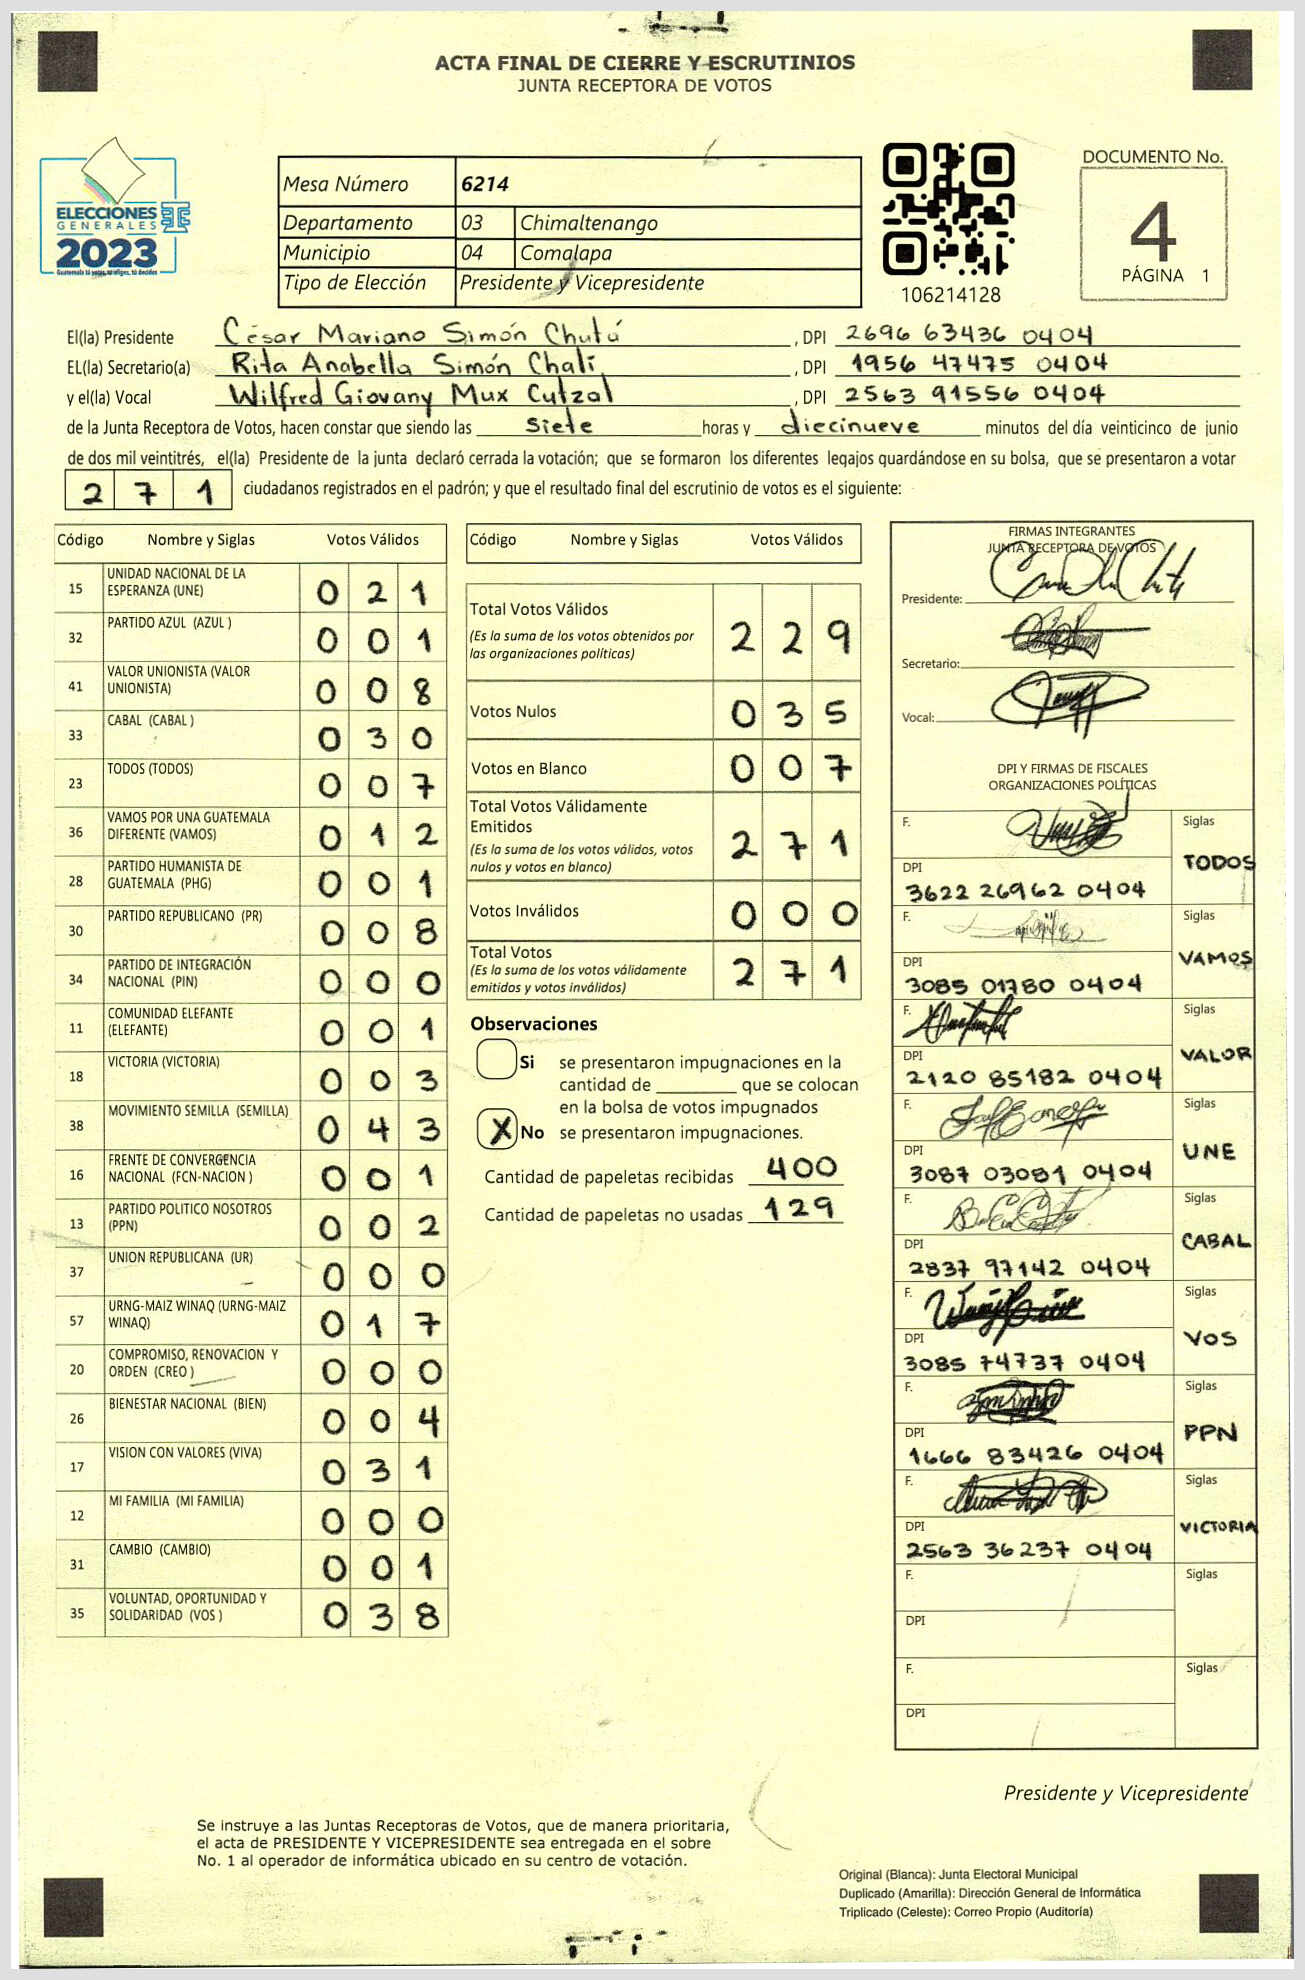 ACTA FINAL DE CIERRE Y ESCRUTINIOS
JUNTA RECEPTORA DE VOTOS
ELECCIONES
GENERALES
2023
Guatemala tú votas, tú eliges, tú decides
Mesa Número 6214
Departamento 03 Chimaltenango
Municipio 04 Comalapa
Tipo de Elección Presidente y Vicepresidente
106214128
DOCUMENTO No.
4
PÁGINA 1
El(la) Presidente César Mariano Simón Chutá , DPI 2696 63436 0404
EL(la) Secretario(a) Rita Anabella Simón Chalí , DPI 1956 47475 0404
y el(la) Vocal Wilfred Giovany Mux Cutzal , DPI 2563 91556 0404
de la Junta Receptora de Votos, hacen constar que siendo las siete horas y diecinueve minutos del día veinticinco de junio
de dos mil veintitrés, el(la) Presidente de la junta declaró cerrada la votación; que se formaron los diferentes legajos guardándose en su bolsa, que se presentaron a votar
2 7 1 ciudadanos registrados en el padrón; y que el resultado final del escrutinio de votos es el siguiente:
Código Nombre y Siglas Votos Válidos
15 UNIDAD NACIONAL DE LA ESPERANZA (UNE) 0 2 1
32 PARTIDO AZUL (AZUL ) 0 0 1
41 VALOR UNIONISTA (VALOR UNIONISTA) 0 0 8
33 CABAL (CABAL ) 0 3 0
23 TODOS (TODOS) 0 0 7
36 VAMOS POR UNA GUATEMALA DIFERENTE (VAMOS) 0 1 2
28 PARTIDO HUMANISTA DE GUATEMALA (PHG) 0 0 1
30 PARTIDO REPUBLICANO (PR) 0 0 8
34 PARTIDO DE INTEGRACIÓN NACIONAL (PIN) 0 0 0
11 COMUNIDAD ELEFANTE (ELEFANTE) 0 0 1
18 VICTORIA (VICTORIA) 0 0 3
38 MOVIMIENTO SEMILLA (SEMILLA) 0 4 3
16 FRENTE DE CONVERGENCIA NACIONAL (FCN-NACION ) 0 0 1
13 PARTIDO POLITICO NOSOTROS (PPN) 0 0 2
37 UNION REPUBLICANA (UR) 0 0 0
57 URNG-MAIZ WINAQ (URNG-MAIZ WINAQ) 0 1 7
20 COMPROMISO, RENOVACION Y ORDEN (CREO ) 0 0 0
26 BIENESTAR NACIONAL (BIEN) 0 0 4
17 VISION CON VALORES (VIVA) 0 3 1
12 MI FAMILIA (MI FAMILIA) 0 0 0
31 CAMBIO (CAMBIO) 0 0 1
35 VOLUNTAD, OPORTUNIDAD Y SOLIDARIDAD (VOS ) 0 3 8
Código Nombre y Siglas Votos Válidos
Total Votos Válidos 2 2 9
(Es la suma de los votos obtenidos por
las organizaciones políticas)
Votos Nulos 0 3 5
Votos en Blanco 0 0 7
Total Votos Válidamente
Emitidos 2 7 1
(Es la suma de los votos válidos, votos
nulos y votos en blanco)
Votos Inválidos 0 0 0
Total Votos 2 7 1
(Es la suma de los votos válidamente
emitidos y votos inválidos)
Observaciones
Si se presentaron impugnaciones en la
cantidad de ________ que se colocan
en la bolsa de votos impugnados
X No se presentaron impugnaciones.
Cantidad de papeletas recibidas 400
Cantidad de papeletas no usadas 129
FIRMAS INTEGRANTES
JUNTA RECEPTORA DE VOTOS
Presidente:
Secretario:
Vocal:
DPI Y FIRMAS DE FISCALES
ORGANIZACIONES POLÍTICAS
F. Siglas
TODOS
DPI
3622 26962 0404
F. Siglas
VAMOS
DPI
3085 01780 0404
F. Siglas
VALOR
DPI
2120 85182 0404
F. Siglas
UNE
DPI
3087 03081 0404
F. Siglas
CABAL
DPI
2837 97142 0404
F. Siglas
VOS
DPI
3085 74737 0404
F. Siglas
PPN
DPI
1666 83426 0404
F. Siglas
VICTORIA
DPI
2563 36237 0404
F. Siglas
DPI
F. Siglas
DPI
Presidente y Vicepresidente
Se instruye a las Juntas Receptoras de Votos, que de manera prioritaria,
el acta de PRESIDENTE Y VICEPRESIDENTE sea entregada en el sobre
No. 1 al operador de informática ubicado en su centro de votación.
Original (Blanca): Junta Electoral Municipal
Duplicado (Amarilla): Dirección General de Informática
Triplicado (Celeste): Correo Propio (Auditoría)